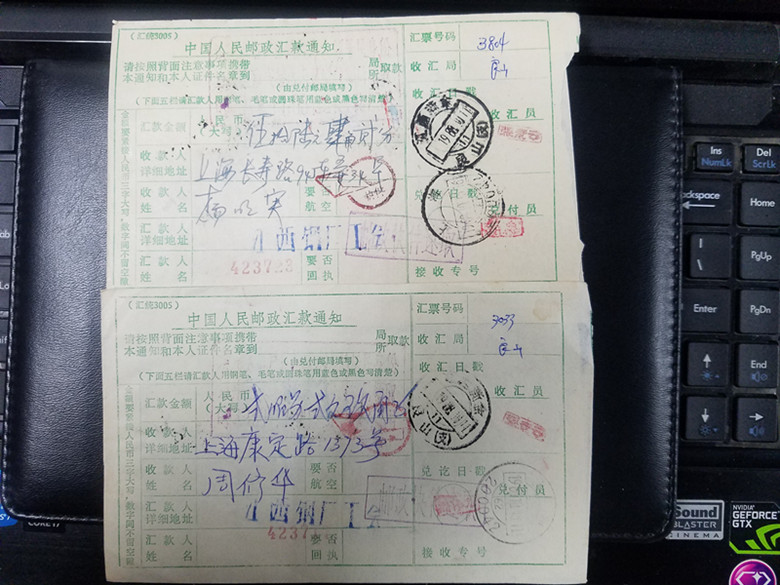 (汇统3005)
中国人民邮政汇款通知
请按照背面注意事项携带
本通知和本人证件名章到
局
所
取款
(由兑付邮局填写)
(下面五栏请汇款人用钢笔、毛笔或圆珠笔用蓝色或黑色写清楚)
汇款金额
人民币
(大写)
伍拾陆元肆角贰分
收款人
详细地址
上海长寿路
收款人
姓名
要否
航空
汇款人
详细地址
江西钢厂工会
汇款人
姓名
423723
要否
回执
金额要冠填人民币三字大写,数字间不留空隙
汇票号码
3804
收汇局
良山
收汇日戳
收汇员
兑讫日戳
兑付员
接收专号
(汇统3005)
中国人民邮政汇款通知
请按照背面注意事项携带
本通知和本人证件名章到
局
所
取款
(由兑付邮局填写)
(下面五栏请汇款人用钢笔、毛笔或圆珠笔用蓝色或黑色写清楚)
汇款金额
人民币
(大写)
收款人
详细地址
上海康定路1373号
收款人
姓名
周修华
要否
航空
汇款人
详细地址
江西钢厂工
汇款人
姓名
4237
要否
回执
金额要冠填人民币三字大写,数字间不留空隙
汇票号码
3033
收汇局
良山
收汇日戳
收汇员
兑讫日戳
兑付员
接收专号
Ins
NumLk
Del
ScrLk
ckspace
Home
PgUp
Enter
PgDn
Shift
End
CORE i7
Sound
BLASTER
CINEMA
NVIDIA
GEFORCE
GTX